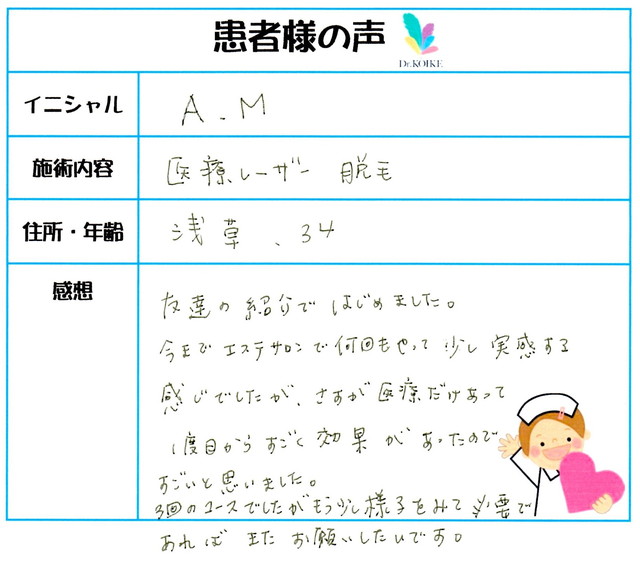 患者様の声
Dr.KOIKE
イニシャル
A.M
施術内容
医療レーザー 脱毛
住所・年齢
浅草、34
感想
友達の紹介ではじめました。
今までエステサロンで何回もやって少し実感する
感じでしたが、さすが医療だけあって
1度目からすごく効果があったので
すごいと思いました。
3回のコースでしたがもう少し様子をみて必要で
あれば またお願いしたいです。